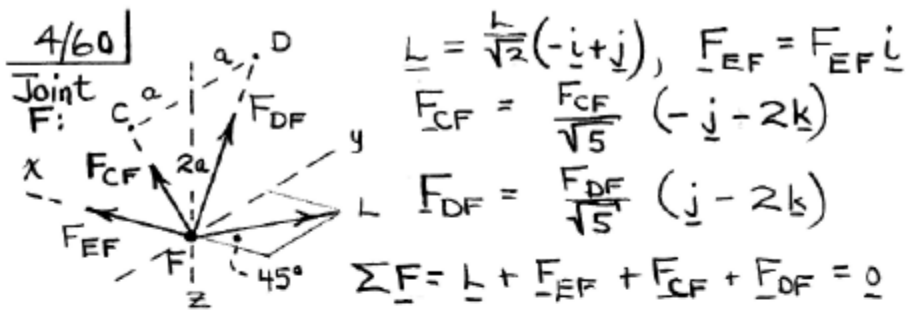 4/60
Joint
F:
a
a
D
C
F_DF
F_CF
2a
y
x
L
F_EF
F
45°
z
L = L/√2 (-i+j), F_EF = F_EF i
F_CF = F_CF/√5 (-j - 2k)
F_DF = F_DF/√5 (j - 2k)
ΣF = L + F_EF + F_CF + F_DF = 0